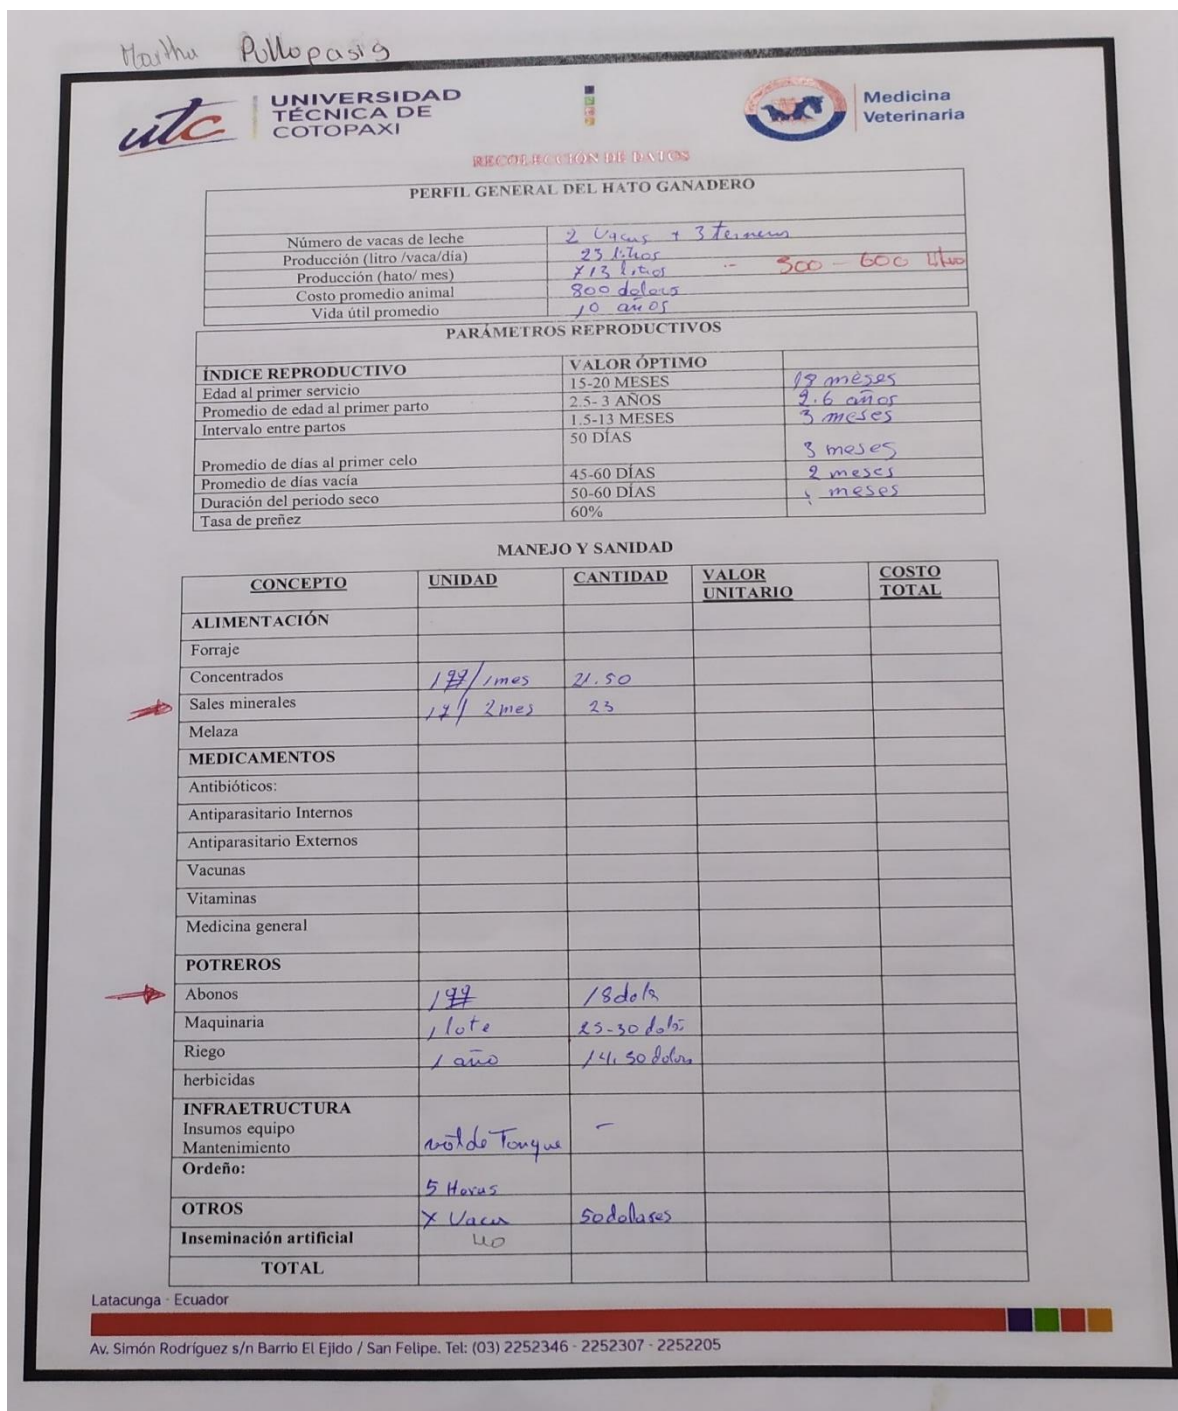 Martha Pullopasig
utc UNIVERSIDAD TÉCNICA DE COTOPAXI
Medicina Veterinaria
RECOLECCIÓN DE DATOS
PERFIL GENERAL DEL HATO GANADERO
Número de vacas de leche 2 Vacas + 3 terneros
Producción (litro /vaca/día) 23 litros
Producción (hato/ mes) 713 litros -- 300 - 600 Litro
Costo promedio animal 800 dolars
Vida útil promedio 10 años
PARÁMETROS REPRODUCTIVOS
ÍNDICE REPRODUCTIVO VALOR ÓPTIMO
Edad al primer servicio 15-20 MESES 18 meses
Promedio de edad al primer parto 2.5- 3 AÑOS 2.6 años
Intervalo entre partos 1.5-13 MESES 3 meses
Promedio de días al primer celo 50 DÍAS 3 meses
Promedio de días vacía 45-60 DÍAS 2 meses
Duración del periodo seco 50-60 DÍAS meses
Tasa de preñez 60%
MANEJO Y SANIDAD
CONCEPTO UNIDAD CANTIDAD VALOR UNITARIO COSTO TOTAL
ALIMENTACIÓN
Forraje
Concentrados 1 /1mes 21.50
Sales minerales 2 mes 23
Melaza
MEDICAMENTOS
Antibióticos:
Antiparasitario Internos
Antiparasitario Externos
Vacunas
Vitaminas
Medicina general
POTREROS
Abonos 18
Maquinaria 1 lote 25-30
Riego 1 año 14.50
herbicidas
INFRAETRUCTURA
Insumos equipo -
Mantenimiento de Tonque
Ordeño: 5 Horas
OTROS x Vaca 50 dolares
Inseminación artificial
TOTAL
Latacunga - Ecuador
Av. Simón Rodríguez s/n Barrio El Ejido / San Felipe. Tel: (03) 2252346 - 2252307 - 2252205